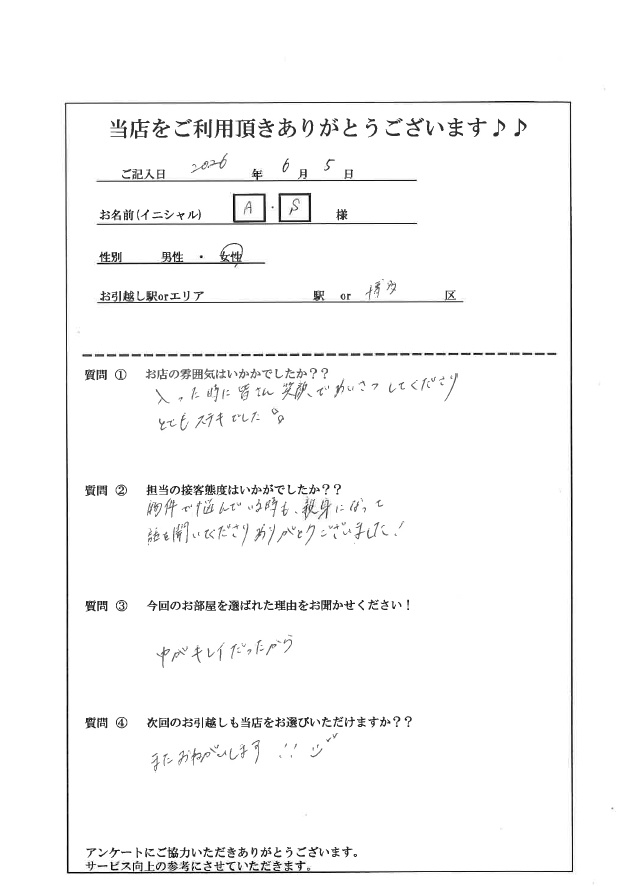 当店をご利用頂きありがとうございます♪♪
ご記入日 2026 年 6 月 5 日
お名前(イニシャル) A ・ S 様
性別 男性 ・ 女性
お引越し駅orエリア 駅 or 博多 区
質問 ① お店の雰囲気はいかがでしたか??
入った時に皆さん笑顔であいさつしてくださり
とてもステキでした
質問 ② 担当の接客態度はいかがでしたか??
物件で悩んでいる時も、親身になって
話を聞いてくださりありがとうございました!
質問 ③ 今回のお部屋を選ばれた理由をお聞かせください!
中がキレイだったから
質問 ④ 次回のお引越しも当店をお選びいただけますか??
またおねがいします!!
アンケートにご協力いただきありがとうございます。
サービス向上の参考にさせていただきます。